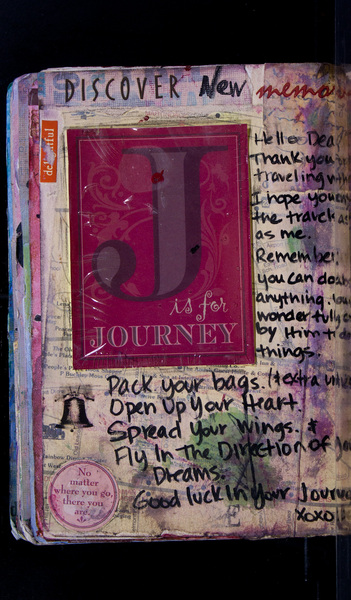 DISCOVER New
delightful
J
is for
JOURNEY
Hello
Thank you
traveling
I hope you
the travel as
as me.
Remember,
you can do
anything.
wonderfully
by Him to do
things.
Pack your bags. (& extra
Open Up Your Heart.
Spread Your Wings. &
Fly In The Direction of
Dreams.
Good luck In Your
xoxo
No
matter
where you go,
there you
are.